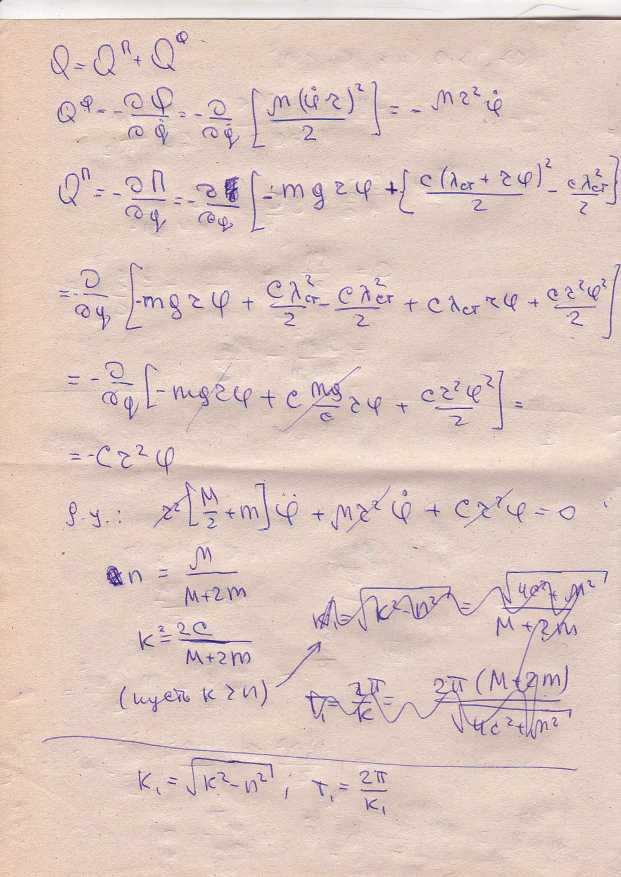 Q = Q^П + Q^Ф
Q^Ф = -∂Φ/∂q̇ = -∂/∂q̇ [μ(φ̇r)²/2] = -μr²φ̇
Q^П = -∂П/∂q = -∂/∂φ [-mgrφ + {c(λст + rφ)²/2 - cλ²ст/2}]
= -∂/∂φ [-mgrφ + cλ²ст/2 - cλ²ст/2 + cλст rφ + cr²φ²/2]
= -∂/∂φ [-mgrφ + c mg/c rφ + cr²φ²/2] =
= -cr²φ
д.у.: r² [M/2 + m] φ̈ + μr²φ̇ + cr²φ = 0
n = μ/(M+2m)
k² = 2c/(M+2m)
(пусть k > n)
k₁ = √(k² - n²) = √(4c² + μ²)/(M+2m)
T₁ = 2π/k = 2π(M+2m)/√(4c² + μ²)
k₁ = √(k² - n²) ; T₁ = 2π/k₁